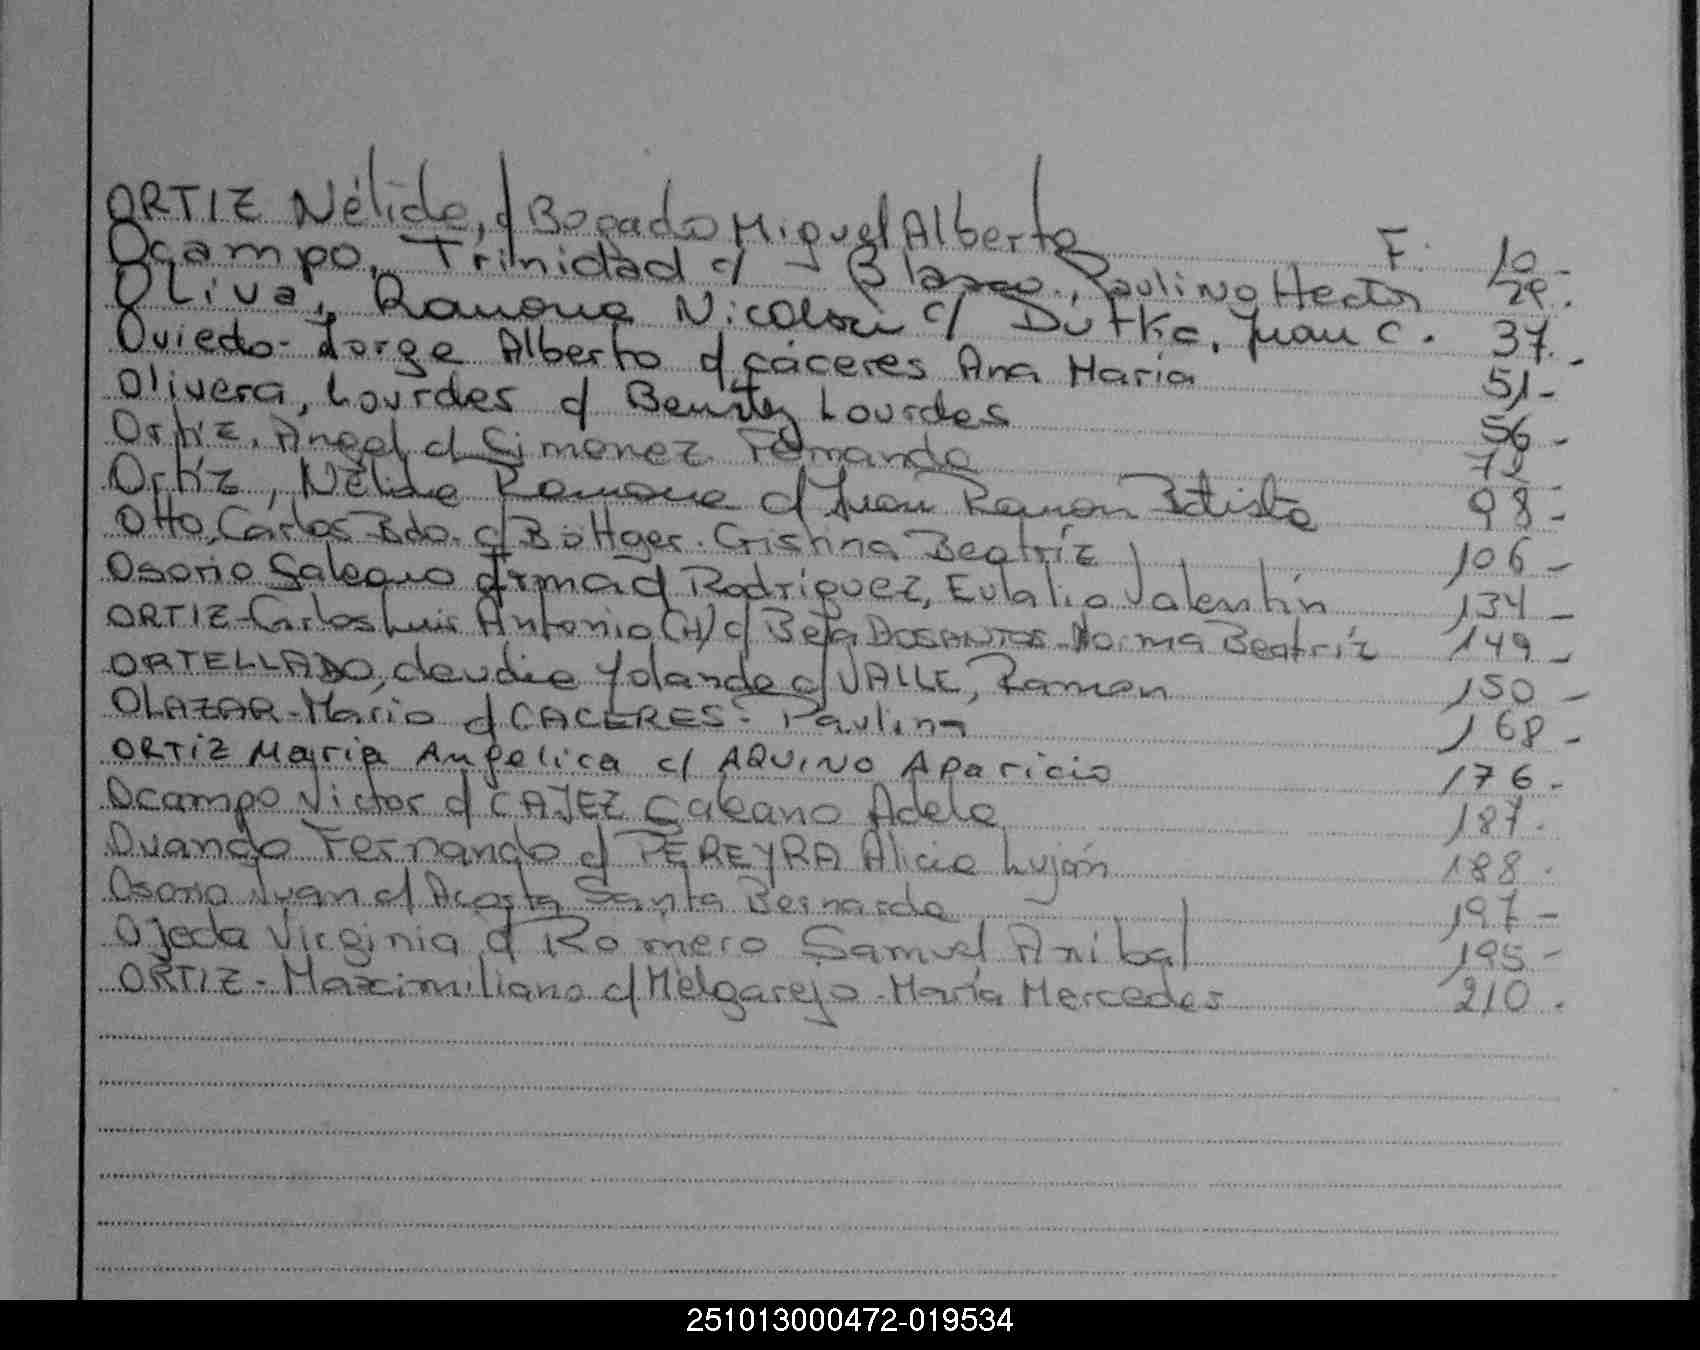 ORTIZ Nélida, c/ Bogado Miguel Alberto F. 10-
Ocampo, Trinidad c/ Blasco, Paulino Hector 29.
Oliva, Ramona Nicolasi c/ Dutke, Juan C. 37.-
Oviedo- Jorge Alberto c/ Cáceres Ana María 51-
Olivera, Lourdes c/ Benitez Lourdes 56-
Ortiz, Angel c/ Gimenez Fernanda 72
Ortiz, Nélida Ramona c/ Juan Ramon Batista 98-
Otto, Carlos Edo. c/ Böttger. Cristina Beatríz 106-
Osorio Galeano Irma c/ Rodríguez, Eulalio Valentín 134-
ORTIZ-Carlos Luis Antonio (H) c/ Beja DOSANTOS-Norma Beatríz 149-
ORTELLADO, Claudia Yolanda c/ VALLE, Ramon 150-
OLAZAR-Mario c/ CACERES- Paulina 168-
ORTIZ María Angelica c/ AQUINO Aparicio 176-
Ocampo Victor c/ CAJEZ Galeano Adela 187.
Ovando Fernando c/ PEREYRA Alicia Luján 188.
Osorio Juan c/ Acosta Santa Bernarda 197-
Ojeda Virginia c/ Romero Samuel Anibal 195-
ORTIZ-Maximiliano c/ Melgarejo-María Mercedes 210.
251013000472-019534